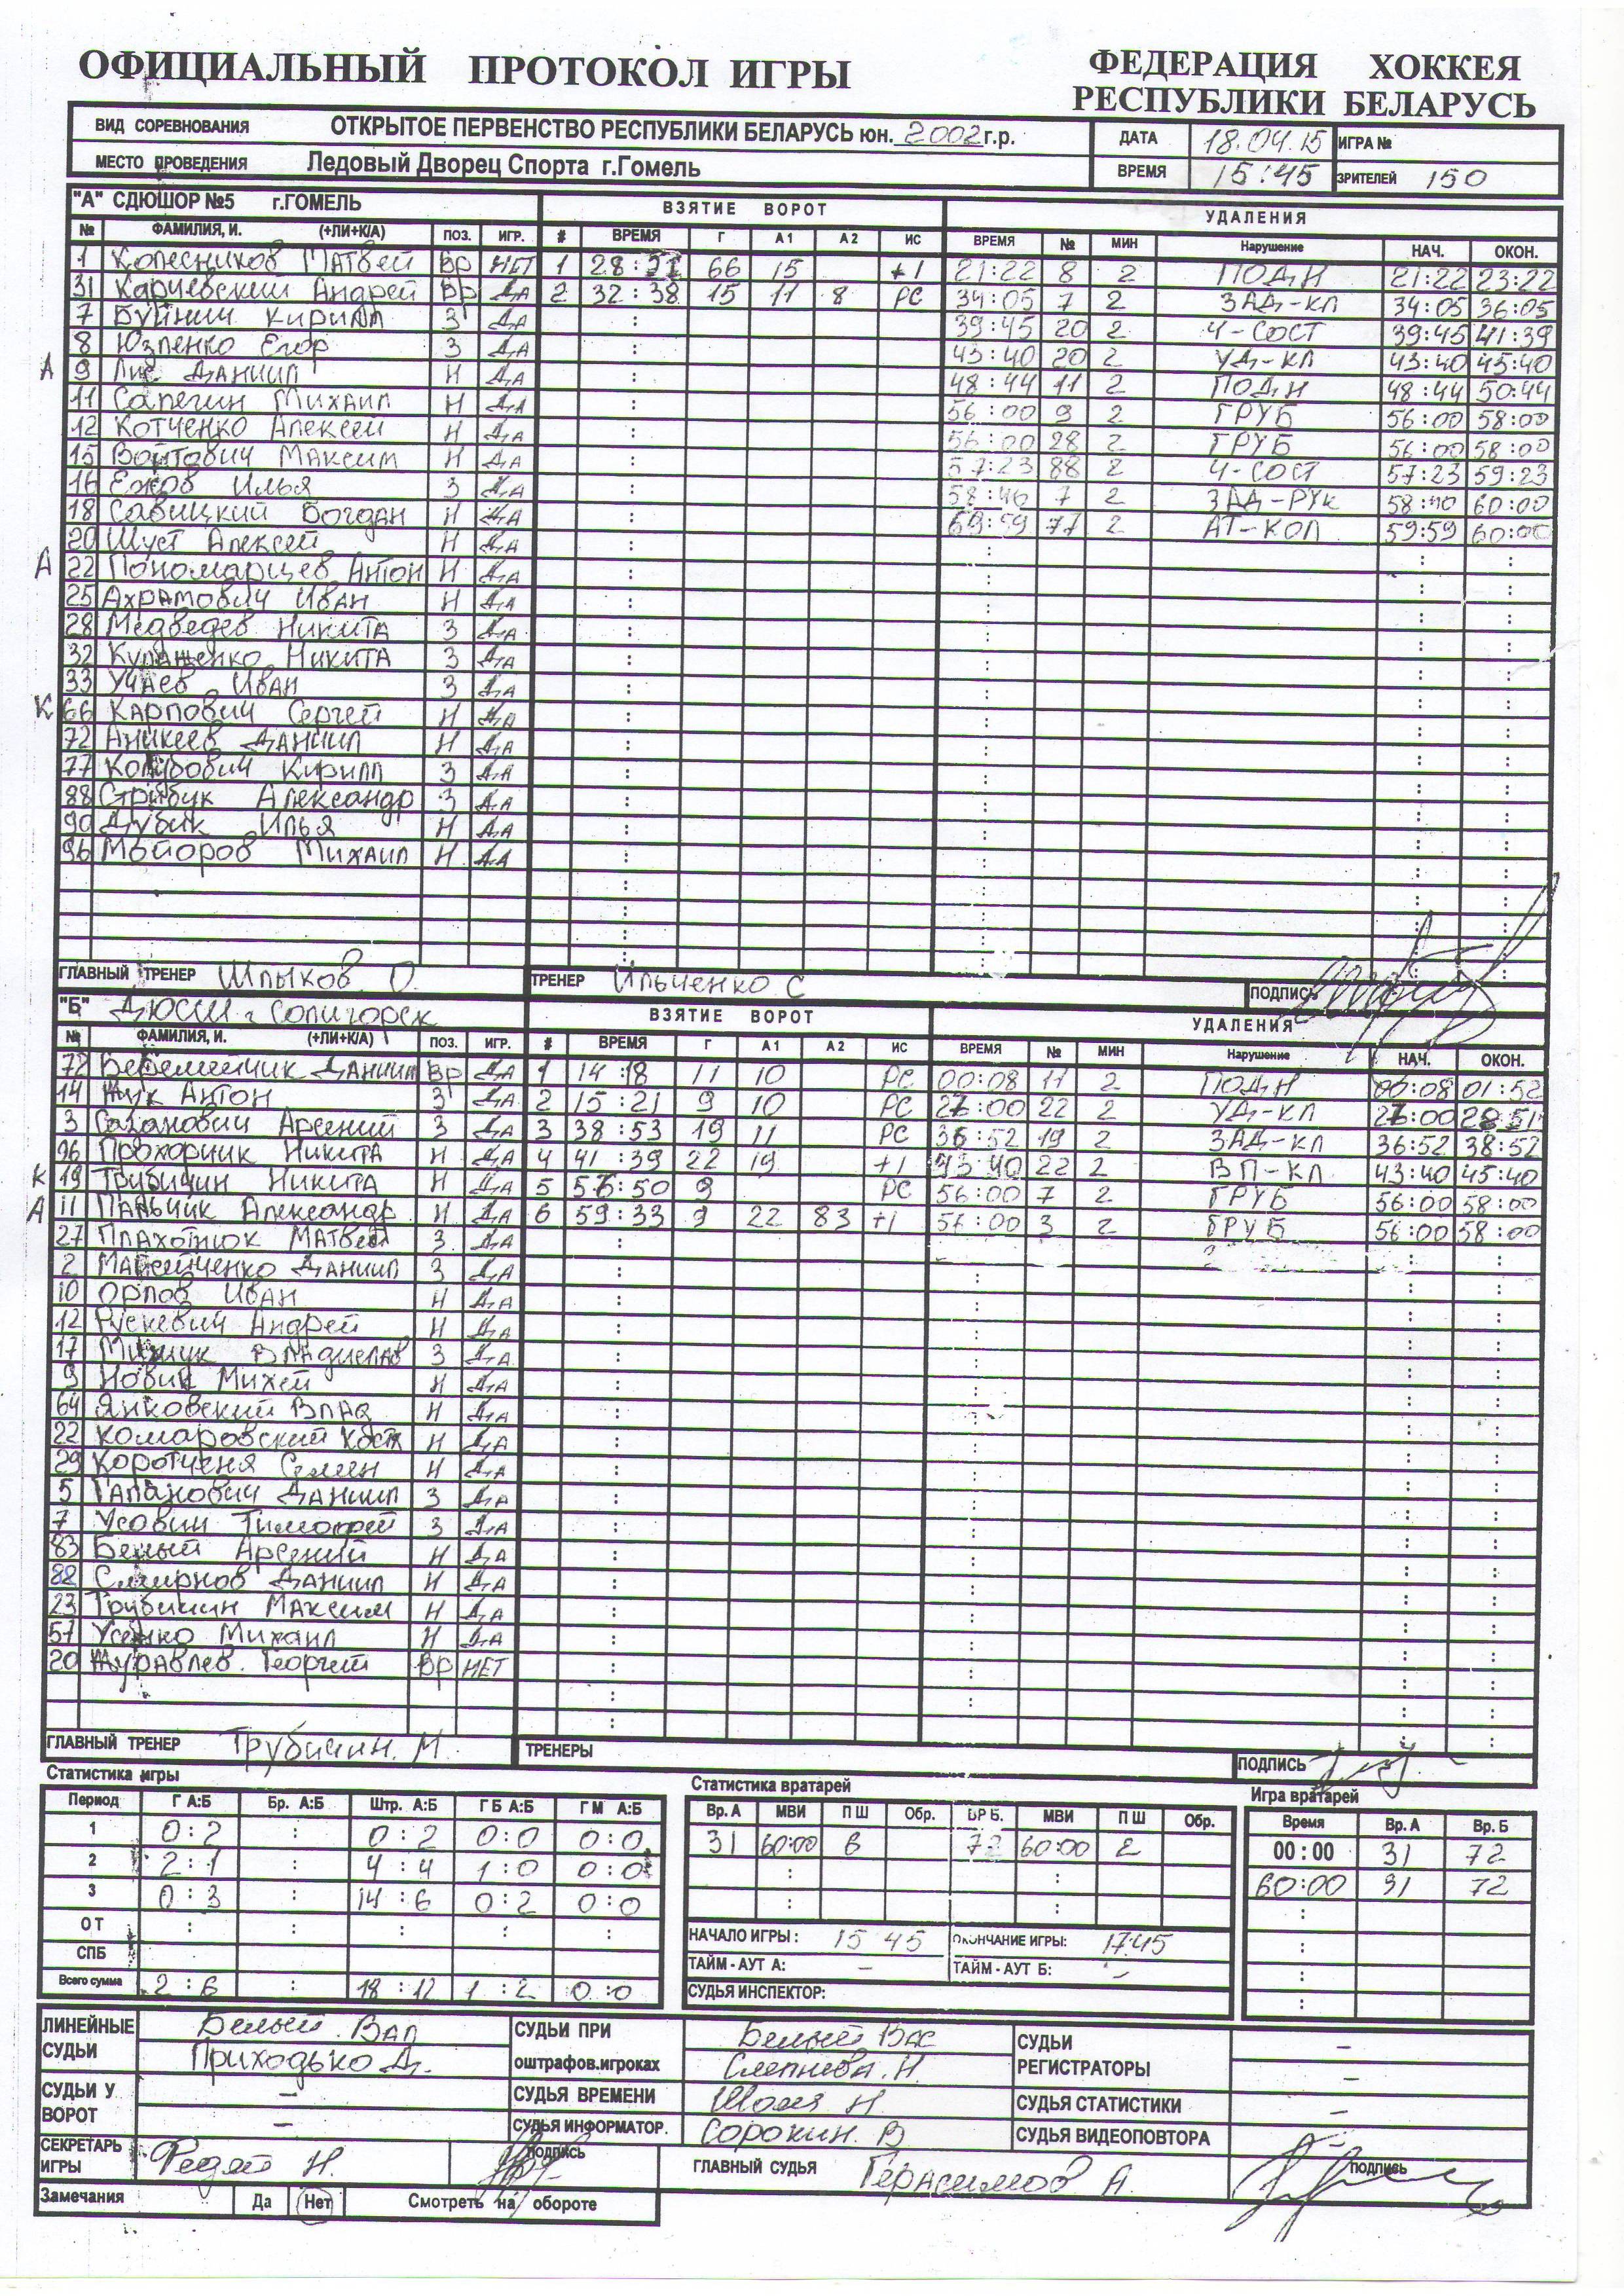 ОФИЦИАЛЬНЫЙ ПРОТОКОЛ ИГРЫ
ФЕДЕРАЦИЯ ХОККЕЯ
РЕСПУБЛИКИ БЕЛАРУСЬ
ВИД СОРЕВНОВАНИЯ ОТКРЫТОЕ ПЕРВЕНСТВО РЕСПУБЛИКИ БЕЛАРУСЬ юн. 2002 г.р. ДАТА 18.04.15 ИГРА №
МЕСТО ПРОВЕДЕНИЯ Ледовый Дворец Спорта г.Гомель ВРЕМЯ 15:45 ЗРИТЕЛЕЙ 150
"А" СДЮШОР №5 г.ГОМЕЛЬ ВЗЯТИЕ ВОРОТ УДАЛЕНИЯ
№ ФАМИЛИЯ, И. (+ЛИ+К/А) ПОЗ. ИГР. # ВРЕМЯ Г А1 А2 ИС ВРЕМЯ № МИН Нарушение НАЧ. ОКОН.
1 Колесников Матвей Вр НЕТ 1 28: 66 15 +1 21:22 8 2 ПОДН 21:22 23:22
31 Карчевский Андрей Вр ДА 2 32:38 15 11 8 РС 34:05 7 2 ЗАД-КЛ 34:05 36:05
7 Буйнич Кирилл З ДА : 39:45 20 2 Ч-СОСТ 39:45 41:39
8 Юзпенко Егор З ДА : 43:40 20 2 УД-КЛ 43:40 45:40
А 9 Лис Даниил Н ДА : 48:44 11 2 ПОДН 48:44 50:44
11 Сапегин Михаил Н ДА : 56:00 9 2 ГРУБ 56:00 58:00
12 Котченко Алексей Н ДА : 56:00 28 2 ГРУБ 56:00 58:00
15 Войтович Максим Н ДА : 57:23 88 2 Ч-СОСТ 57:23 59:23
16 Ежов Илья З ДА : 58:40 7 2 ЗАД-РУК 58:40 60:00
18 Савицкий Богдан Н ДА : 59:59 77 2 АТ-КОЛ 59:59 60:00
20 Шуст Алексей Н ДА
А 22 Пономарцев Антон Н ДА
25 Ахрамович Иван Н ДА
28 Медведев Никита З ДА
32 Никита З ДА
33 Учаев Иван З ДА
К 66 Карпович Сергей Н ДА
72 Аникеев Даниил Н ДА
77 Кирилл З ДА
88 Стрибук Александр З ДА
90 Дубик Илья Н ДА
96 Михаил Н ДА
ГЛАВНЫЙ ТРЕНЕР Шлыков О. ТРЕНЕР Ильченко С ПОДПИСЬ
"Б" ДЮСШ г Солигорск ВЗЯТИЕ ВОРОТ УДАЛЕНИЯ
№ ФАМИЛИЯ, И. (+ЛИ+К/А) ПОЗ. ИГР. # ВРЕМЯ Г А1 А2 ИС ВРЕМЯ № МИН Нарушение НАЧ. ОКОН.
72 Даниил Вр ДА 1 14:18 11 10 РС 00:08 11 2 ПОДН 00:08 01:52
14 Жук Антон З ДА 2 15:21 9 10 РС 26:00 22 2 УД-КЛ 26:00 28:51
3 Сазанович Арсений З ДА 3 38:53 19 11 РС 36:52 19 2 ЗАД-КЛ 36:52 38:52
96 Прохорчик Никита Н ДА 4 41:39 22 19 +1 43:40 22 2 ВП-КЛ 43:40 45:40
К 19 Трубичин Никита Н ДА 5 56:50 9 РС 56:00 7 2 ГРУБ 56:00 58:00
А 11 Пальчик Александр Н ДА 6 59:33 9 22 83 +1 56:00 3 2 ГРУБ 56:00 58:00
27 Плахотнюк Матвей З ДА
2 Даниил З ДА
10 Орлов Иван Н ДА
12 Рускевич Андрей Н ДА
17 Владислав З ДА
9 Новик Михей Н ДА
64 Янковский Влад Н ДА
22 Комаровский Костя Н ДА
29 Коротченя Семен Н ДА
5 Гапанович Даниил З ДА
7 Усович Тимофей З ДА
83 Белый Арсений Н ДА
88 Смирнов Даниил Н ДА
23 Трубичин Максим Н ДА
57 Усенко Михаил Н ДА
20 Журавлев Георгий ВР НЕТ
ГЛАВНЫЙ ТРЕНЕР Трубичин. М ТРЕНЕРЫ ПОДПИСЬ
Статистика игры Статистика вратарей Игра вратарей
Период Г А:Б Бр. А:Б Штр. А:Б ГБ А:Б ГМ А:Б Вр. А МВИ ПШ Обр. ВР Б. МВИ ПШ Обр. Время Вр. А Вр. Б
1 0:2 : 0:2 0:0 0:0 31 60:00 6 72 60:00 2 00:00 31 72
2 2:1 : 4:4 1:0 0:0 60:00 31 72
3 0:3 : 14:6 0:2 0:0
ОТ : : : : :
СПБ
Всего сумма 2:6 : 18:12 1:2 0:0
НАЧАЛО ИГРЫ: 15 45 ОКОНЧАНИЕ ИГРЫ: 17 45
ТАЙМ-АУТ А: – ТАЙМ-АУТ Б: –
СУДЬЯ ИНСПЕКТОР:
ЛИНЕЙНЫЕ СУДЬИ Белый Вал СУДЬИ ПРИ оштрафов.игроках Белый Вас СУДЬИ РЕГИСТРАТОРЫ –
Приходько Д. Слепнева. Н. –
СУДЬИ У ВОРОТ – СУДЬЯ ВРЕМЕНИ Н. СУДЬЯ СТАТИСТИКИ –
– СУДЬЯ ИНФОРМАТОР. Сорокин. В СУДЬЯ ВИДЕОПОВТОРА –
СЕКРЕТАРЬ ИГРЫ Н. ПОДПИСЬ ГЛАВНЫЙ СУДЬЯ Герасимов А. ПОДПИСЬ
Замечания Да Нет Смотреть на обороте